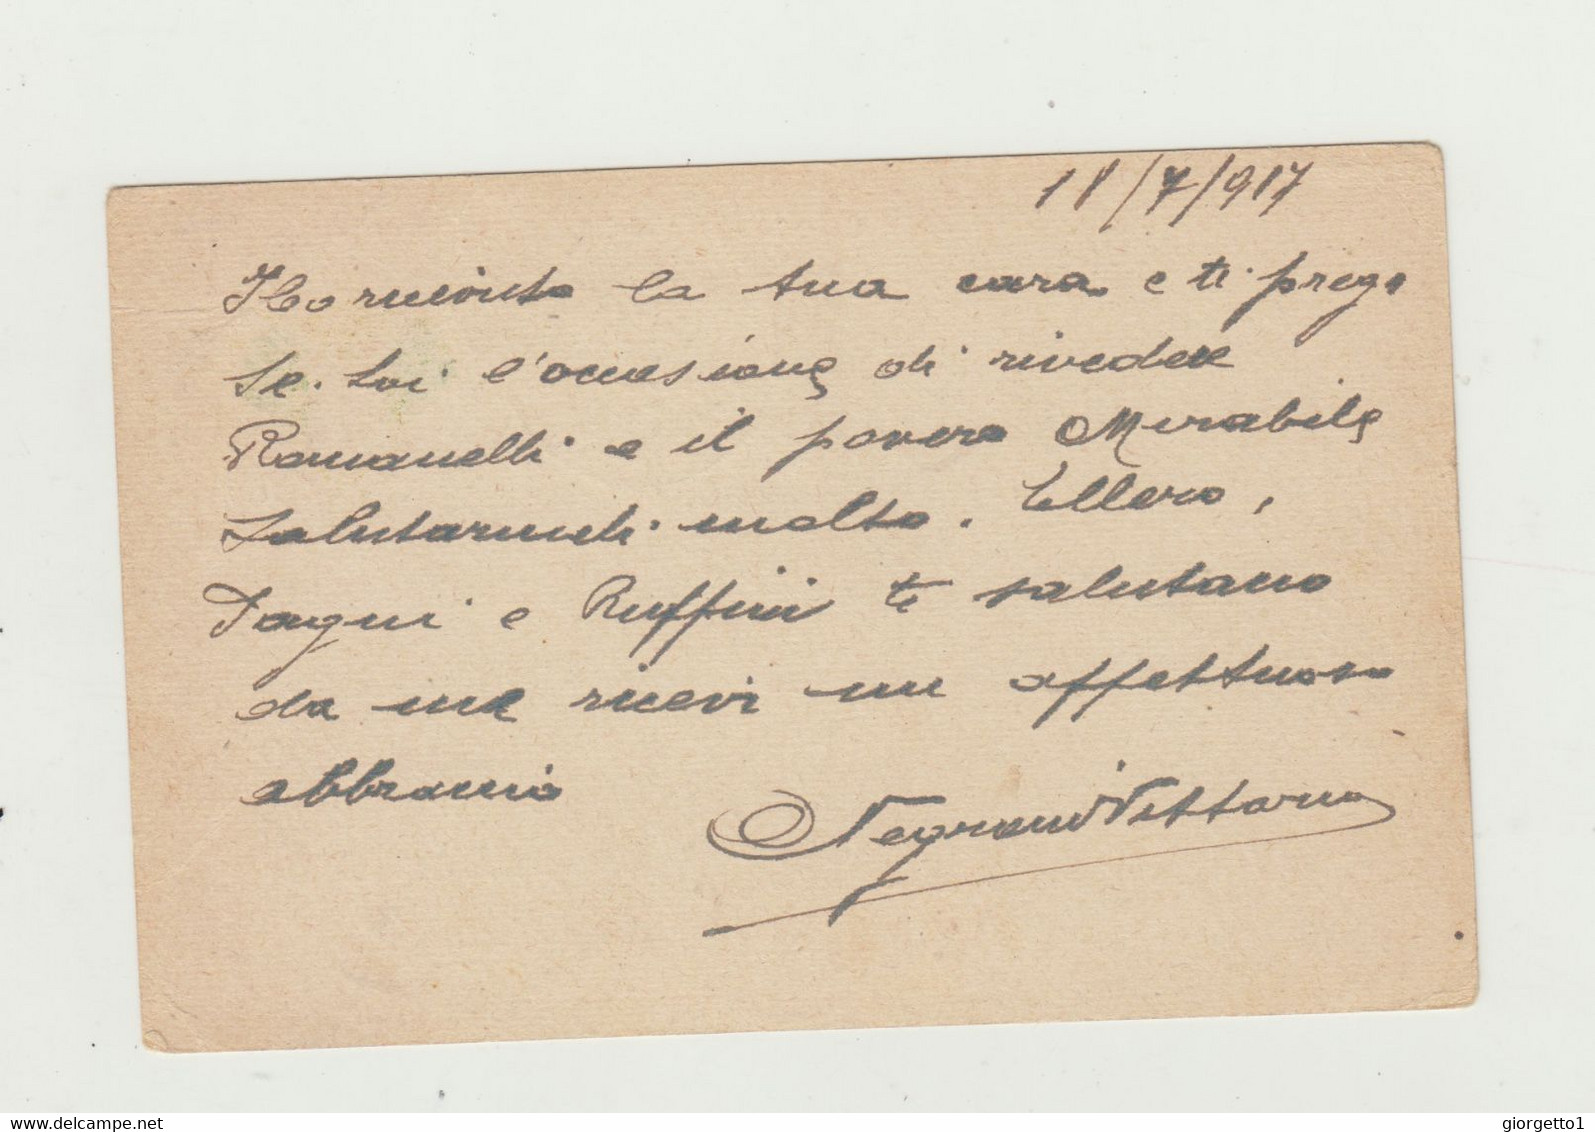 18/7/917
Ho ricevuto la tua cara e ti prego
se hai l'occasione di rivedere
Romanelli e il povero Mirabile
Salutarmeli molto. Ellero,
e Ruffini te salutano
da me ricevi un affettuoso
abbraccio
Negroni Vittorio
www.delcampe.net
giorgetto1